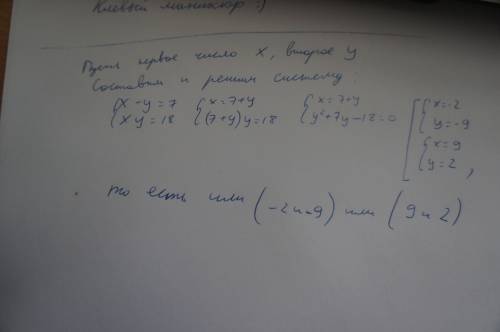 Клевый маникюр :)
Пусть первое число x, второе y
Составим и решим систему:
{x - y = 7 {x = 7+y {x = 7+y [{x = -2
{xy = 18 {(7+y)y = 18 {y²+7y-18=0 {y = -9
{x = 9
{y = 2,
то есть или (-2 и -9) или (9 и 2)